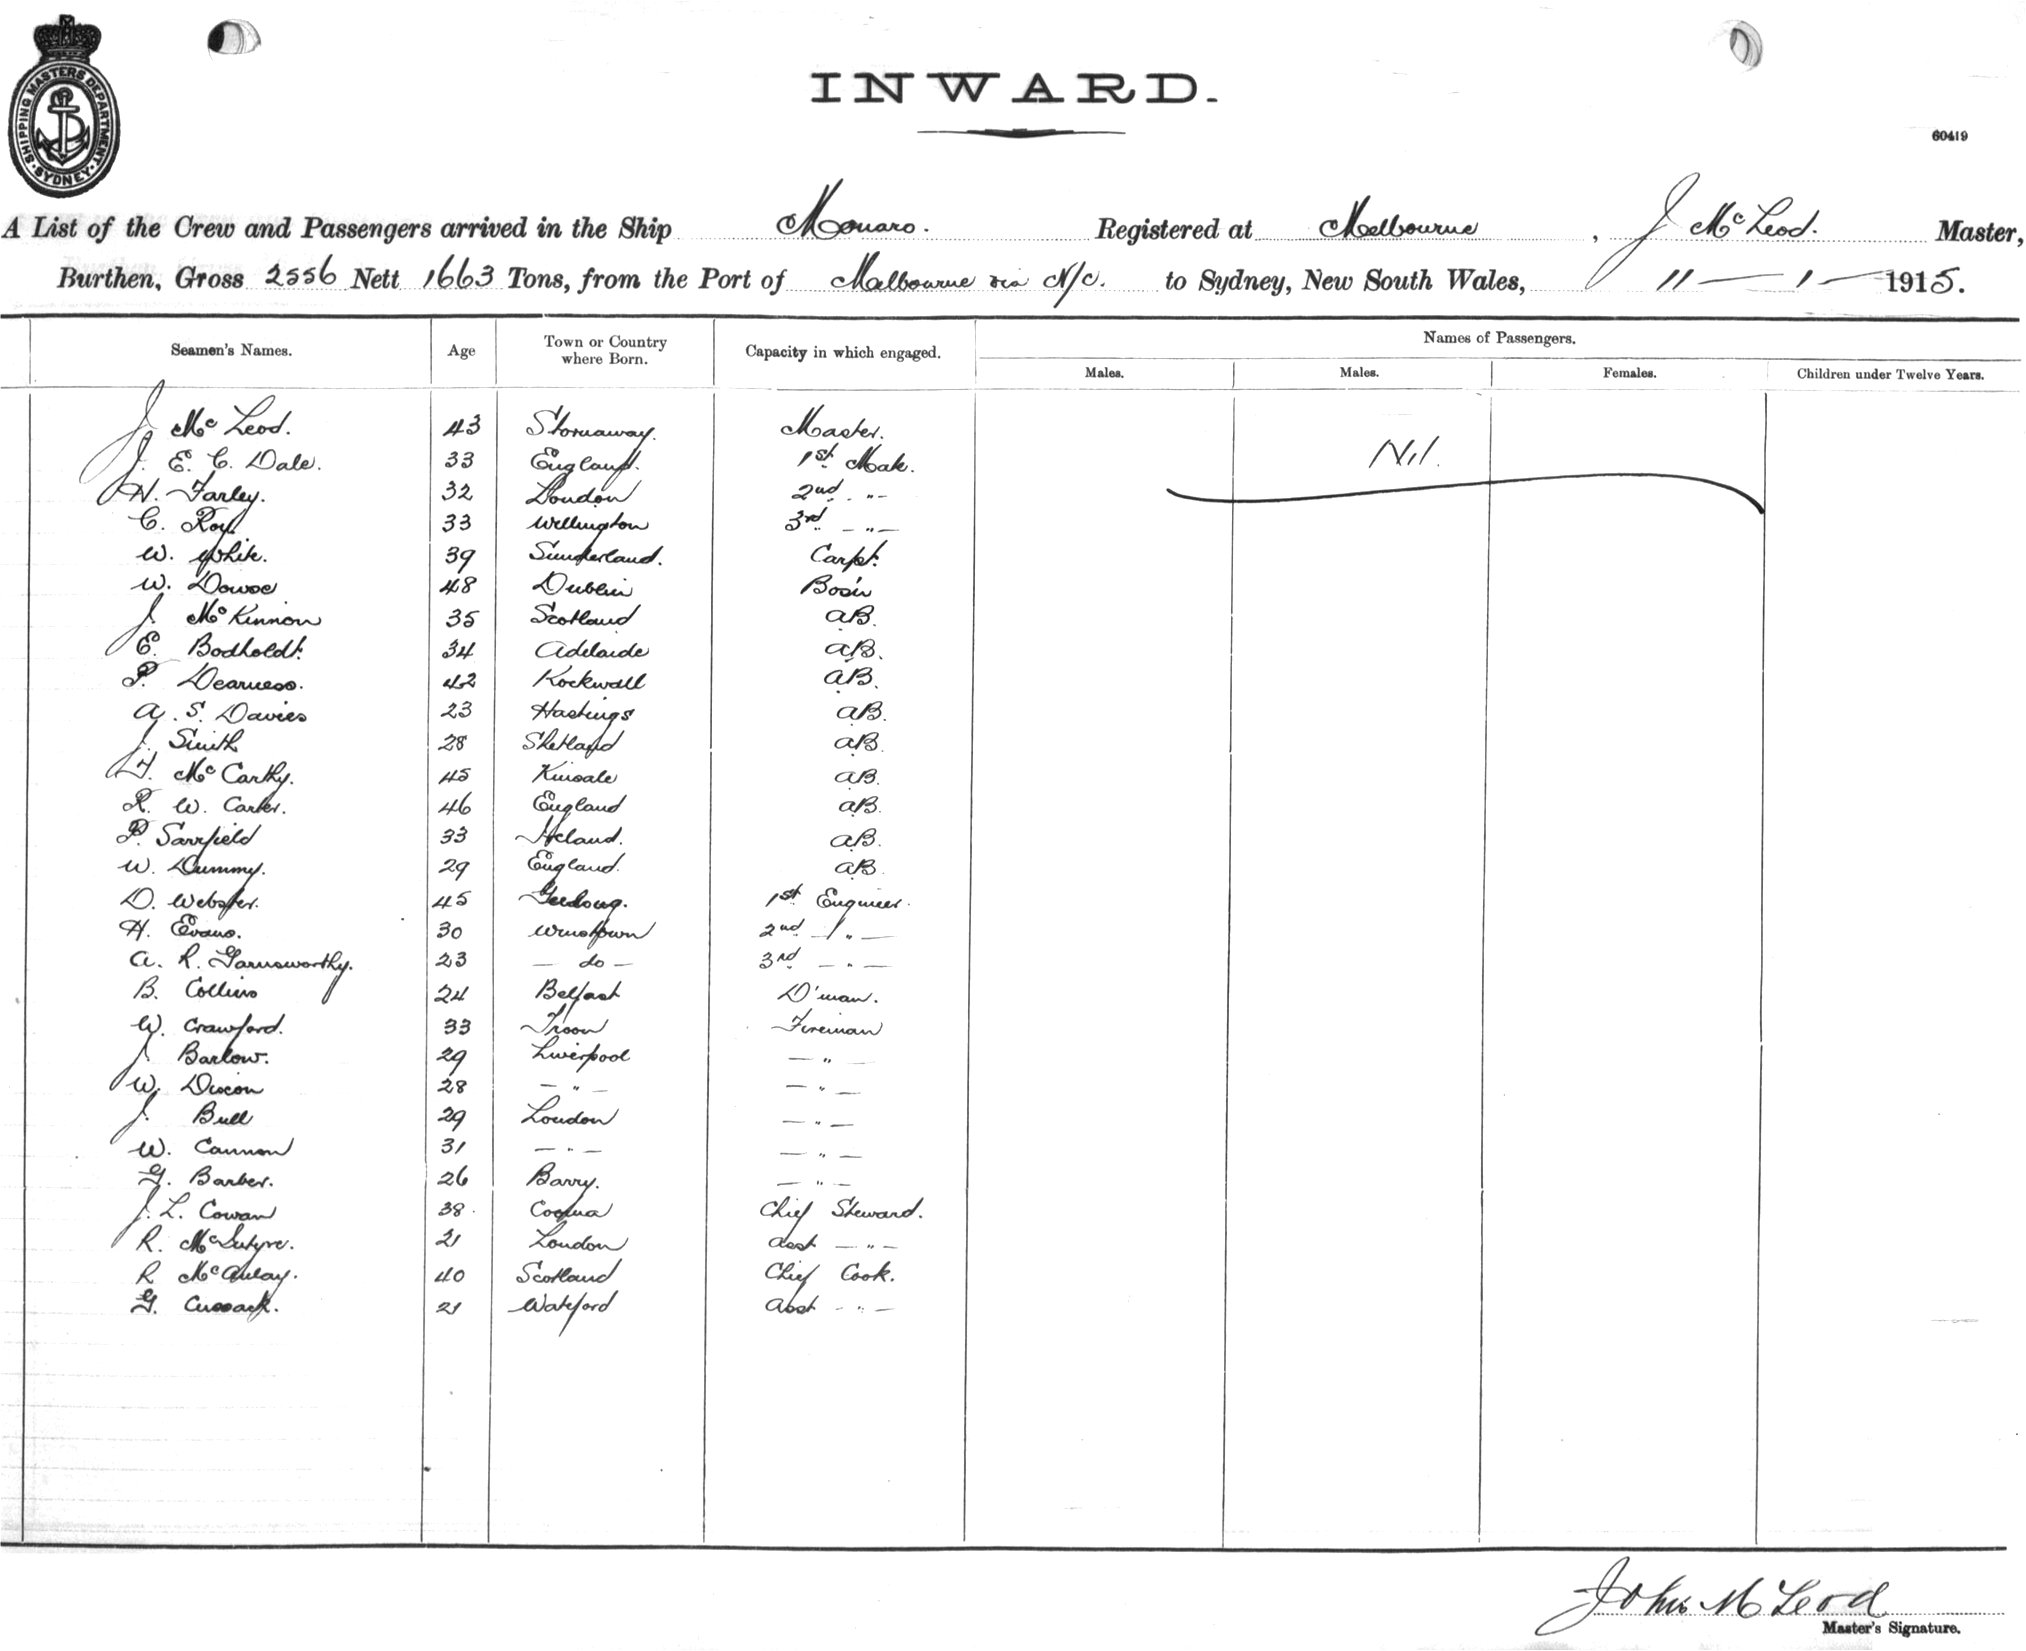 SHIPPING MASTERS DEPARTMENT. SYDNEY.
INWARD.
60419
A List of the Crew and Passengers arrived in the Ship Monaro. Registered at Melbourne, J McLeod. Master,
Burthen, Gross 2556 Nett 1663 Tons, from the Port of Melbourne via N/C. to Sydney, New South Wales, 11 — 1 — 1915.
Seamen's Names. Age Town or Country where Born. Capacity in which engaged. Names of Passengers.
Males. Males. Females. Children under Twelve Years.
J McLeod. 43 Stornaway. Master.
J. E. C. Dale. 33 England. 1st Mate. Nil.
H. Farley. 32 London 2nd -"-
C. Roy. 33 Wellington 3rd -"-
W. White. 39 Sunderland. Carpt.
W. Dowse 48 Dublin Bos'n
J. McKinnon 35 Scotland AB.
E. Bodholdt. 34 Adelaide AB.
P. Dearness. 42 Kockwall AB.
A. S. Davies 23 Hastings AB.
J. Smith 28 Shetland AB.
McCarthy. 45 Kinsale AB.
R. W. Carter. 46 England AB.
P. Sarsfield 33 Ireland. AB.
W. Dummy. 29 England. AB.
D. Webster. 45 Geelong. 1st Engineer.
H. Evans. 30 2nd -"-
A. R. Garnsworthy. 23 — do — 3rd -"-
B. Collins 24 Belfast D'man.
W. Crawford. 33 Troon Fireman
J. Barlow. 29 Liverpool -"-
W. Dixon 28 -"- -"-
J. Bull 29 London -"-
W. Cannon 31 -"- -"-
G. Barber. 26 Barry. -"-
J. L. Cowan 38 Cooma Chief Steward.
R. McIntyre. 21 London Asst -"-
R McAulay. 40 Scotland Chief Cook.
G. Cussack. 21 Wateford Asst -"-
John McLeod
Master's Signature.